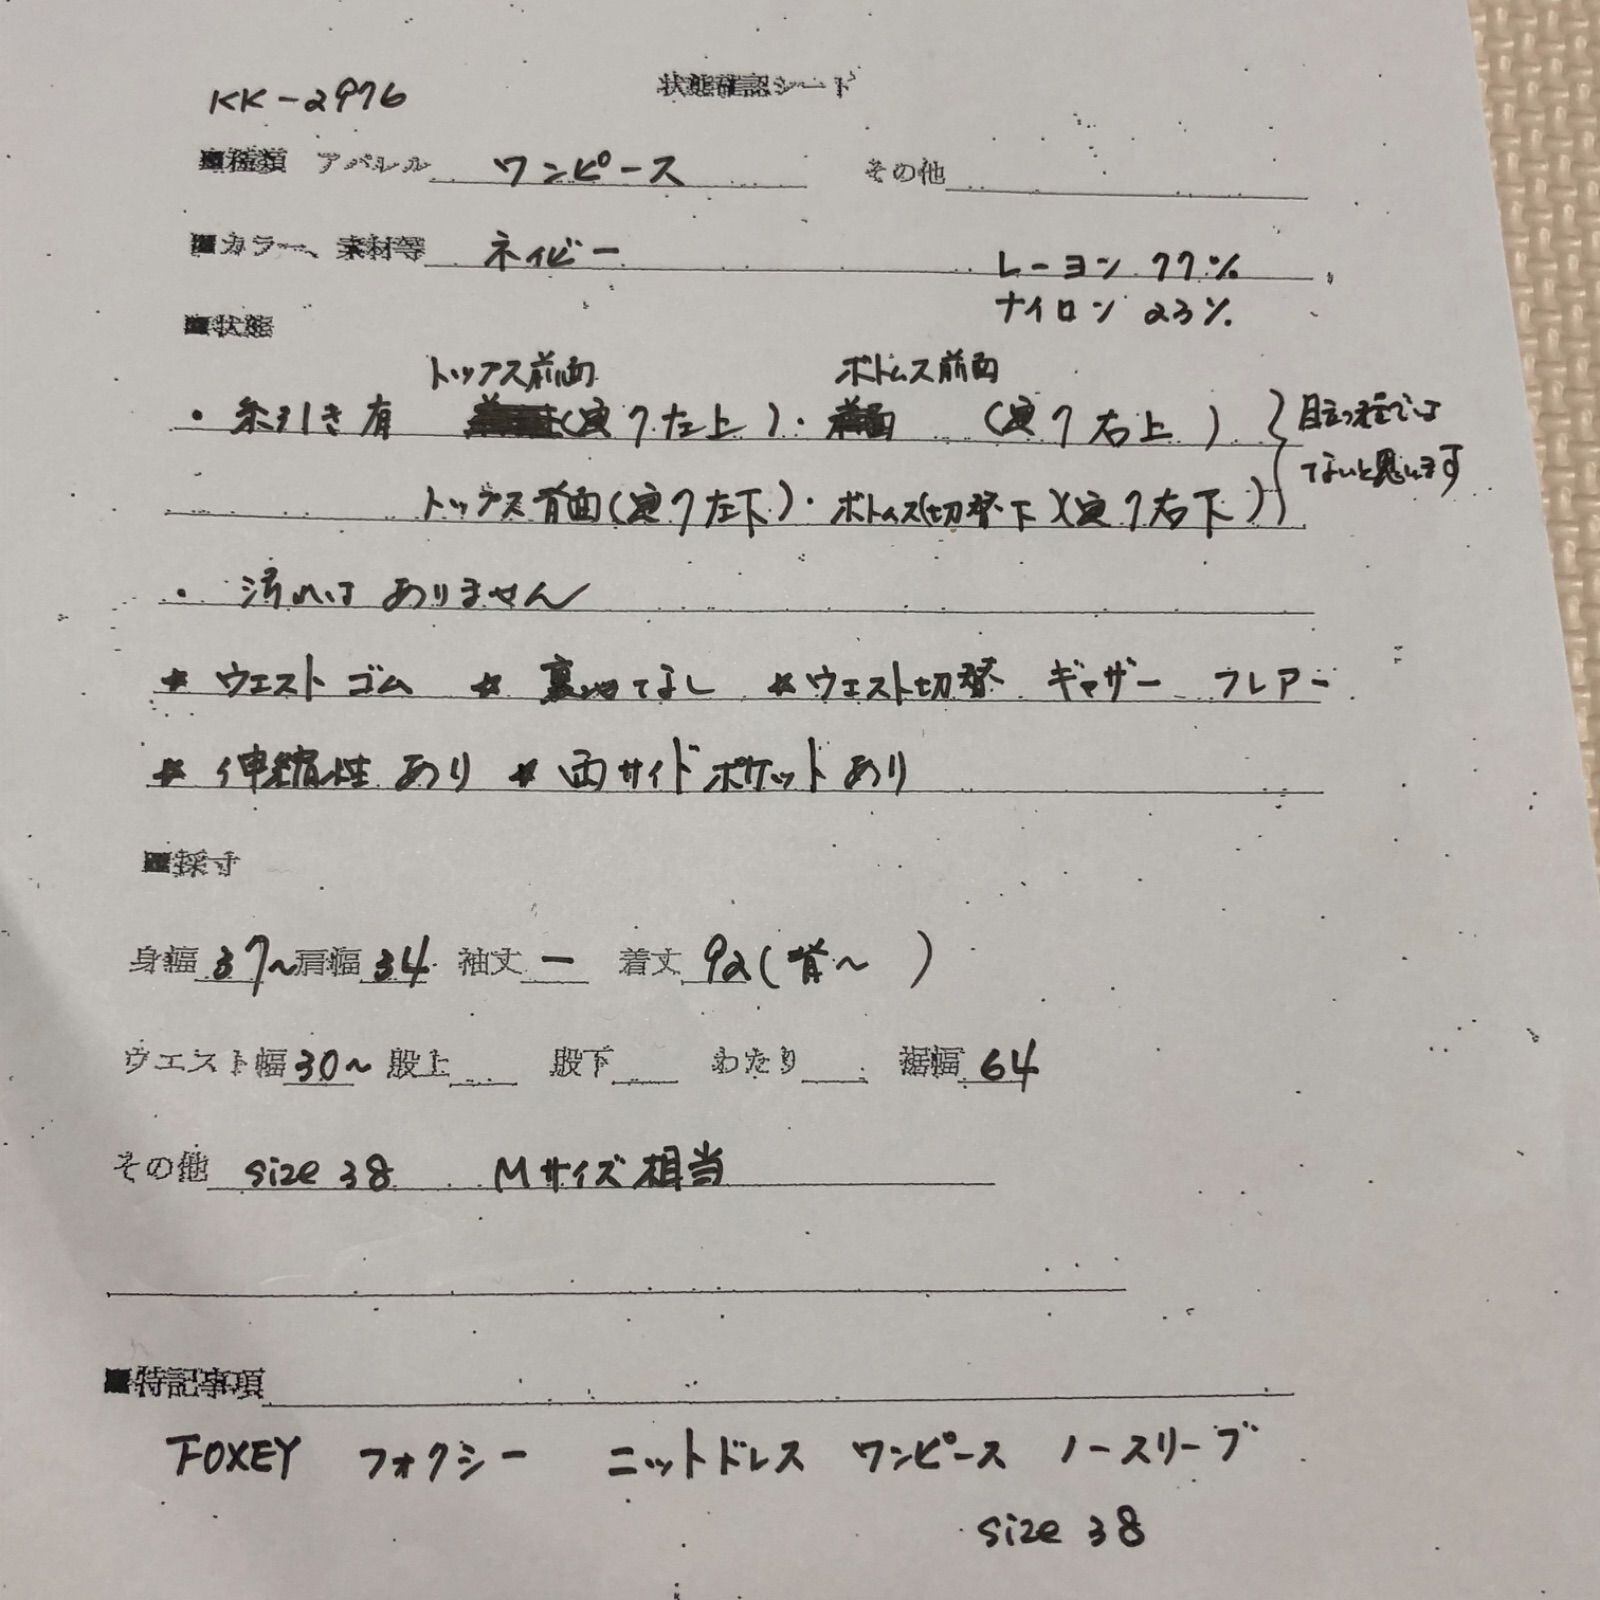 KK-2976
状態確認シート
■種類 アパレル ワンピース その他
■カラー、素材等 ネイビー レーヨン 77%
ナイロン 23%
■状態
トップス前面 ボトムス前面
・糸引き有 (向って左上)・ (向って右上)
トップス背面(向って左下)・ボトムス(切替下)(向って右下)
目立つ程では
ないと思います
・汚れは ありません
* ウエスト ゴム * 裏地なし * ウエスト切替 ギャザー フレアー
* 伸縮性 あり * 両サイド ポケット あり
■採寸
身幅 37~ 肩幅 34 袖丈 ー 着丈 92(背~ )
ウエスト幅 30~ 股上 股下 わたり 裾幅 64
その他 size 38 Mサイズ相当
■特記事項
FOXEY フォクシー ニットドレス ワンピース ノースリーブ
size 38